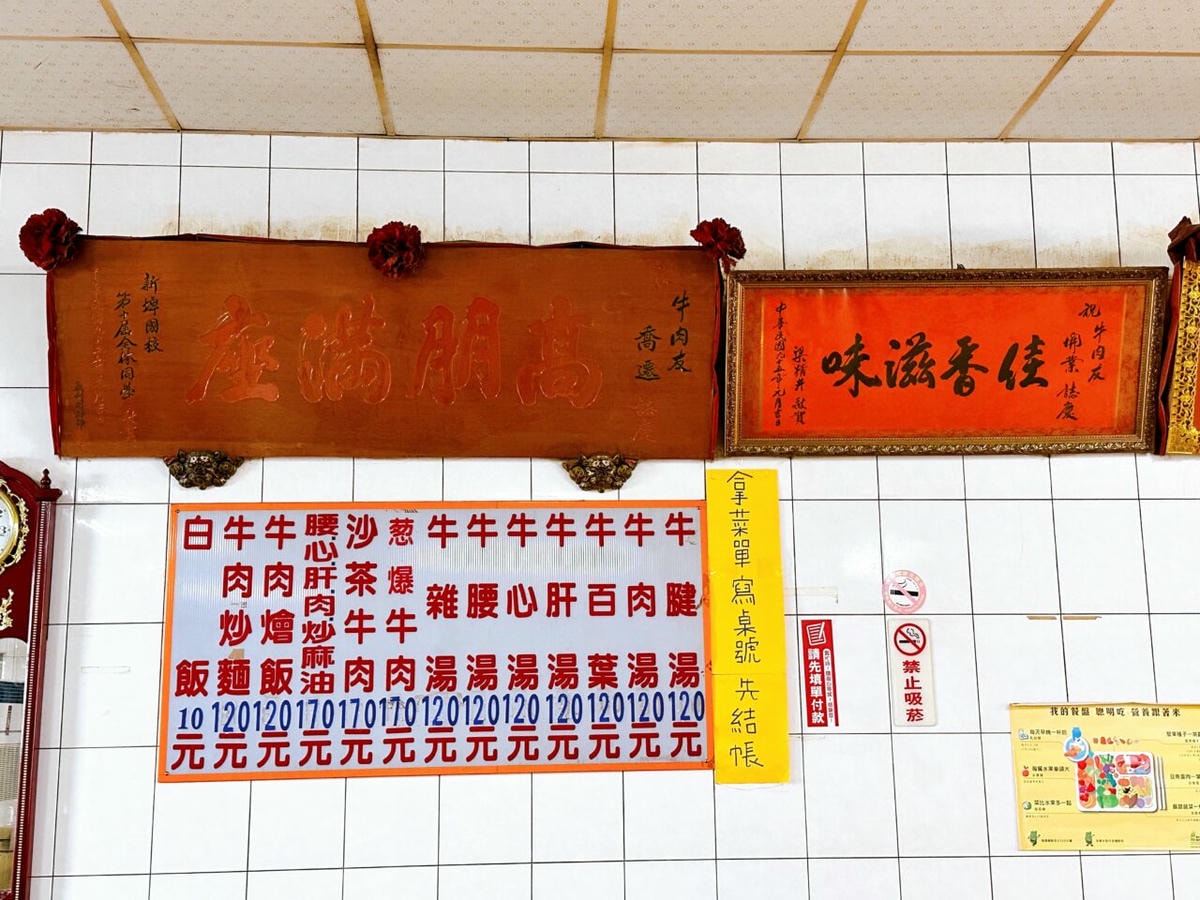 牛肉友
喬遷
高朋滿座
新埤國校
祝牛肉友
開業誌慶
佳香滋味
梁精井敬賀
中華民國九十五年元月吉日
牛腱湯 120元
牛肉湯 120元
牛百葉 120元
牛肝湯 120元
牛心湯 120元
牛腰湯 120元
牛雜湯 120元
葱爆牛肉 170元
沙茶牛肉 170元
腰.心.肝.肉.炒麻油 170元
牛肉燴飯 120元
牛肉炒麵 120元
白飯 10元
拿菜單寫桌號先結帳
請先填單付款
禁止吸菸
我的餐盤 聰明吃 營養跟著來
每天早晚一杯奶
每餐水果拳頭大
菜比水果多一點